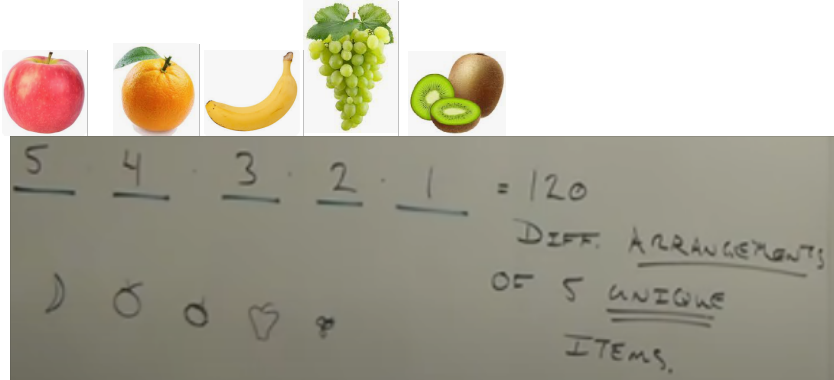 5 · 4 · 3 · 2 · 1 = 120
DIFF. ARRANGEMENTS
OF 5 UNIQUE
ITEMS.